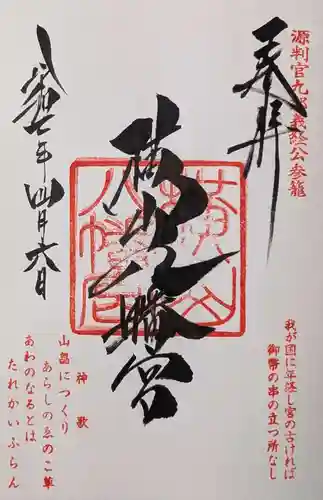 奉拝
源判官九郎義経公参籠
横山八幡宮
横山八幡宮
七年四月六日
我が国に年経し宮の古ければ
御幣の串の立つ所なし
神歌
山畠につくり
あらしのゑのこ草
あわのなるとは
たれかいふらん